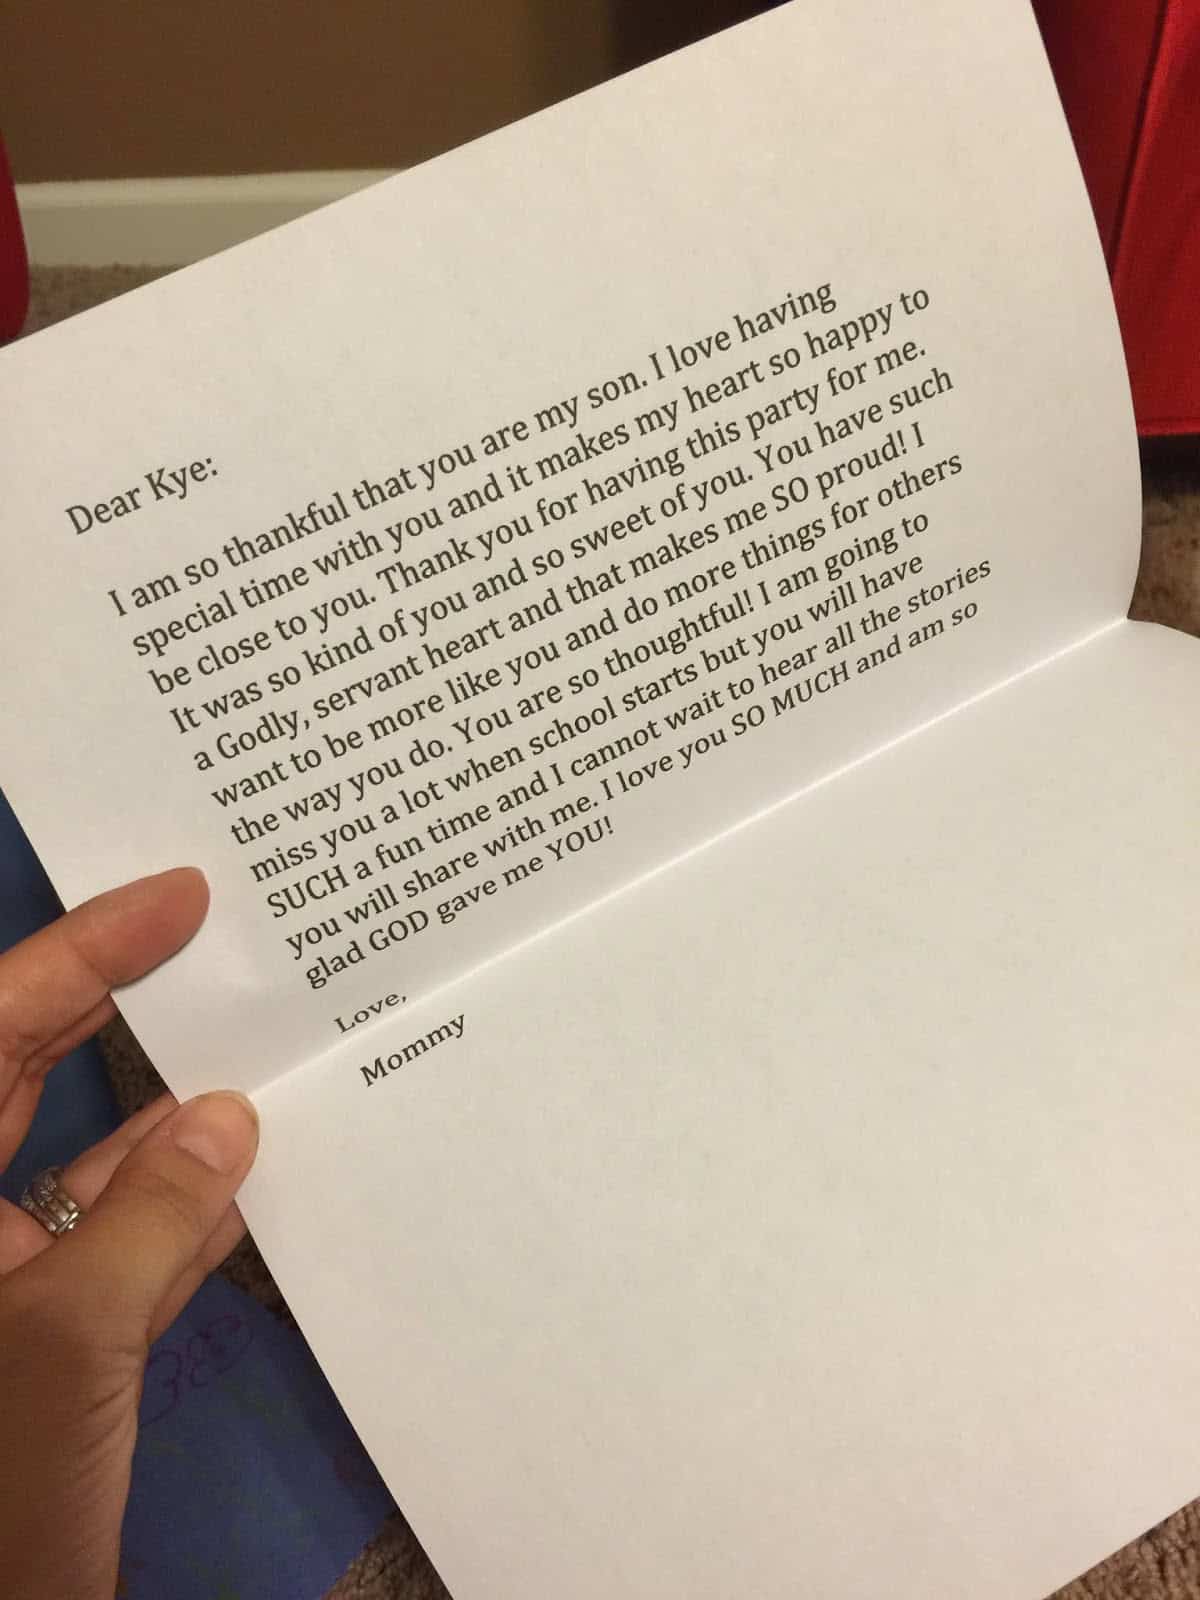 Dear Kye:
I am so thankful that you are my son. I love having
special time with you and it makes my heart so happy to
be close to you. Thank you for having this party for me.
It was so kind of you and so sweet of you. You have such
a Godly, servant heart and that makes me SO proud! I
want to be more like you and do more things for others
the way you do. You are so thoughtful! I am going to
miss you a lot when school starts but you will have
SUCH a fun time and I cannot wait to hear all the stories
you will share with me. I love you SO MUCH and am so
glad GOD gave me YOU!
Love,
Mommy